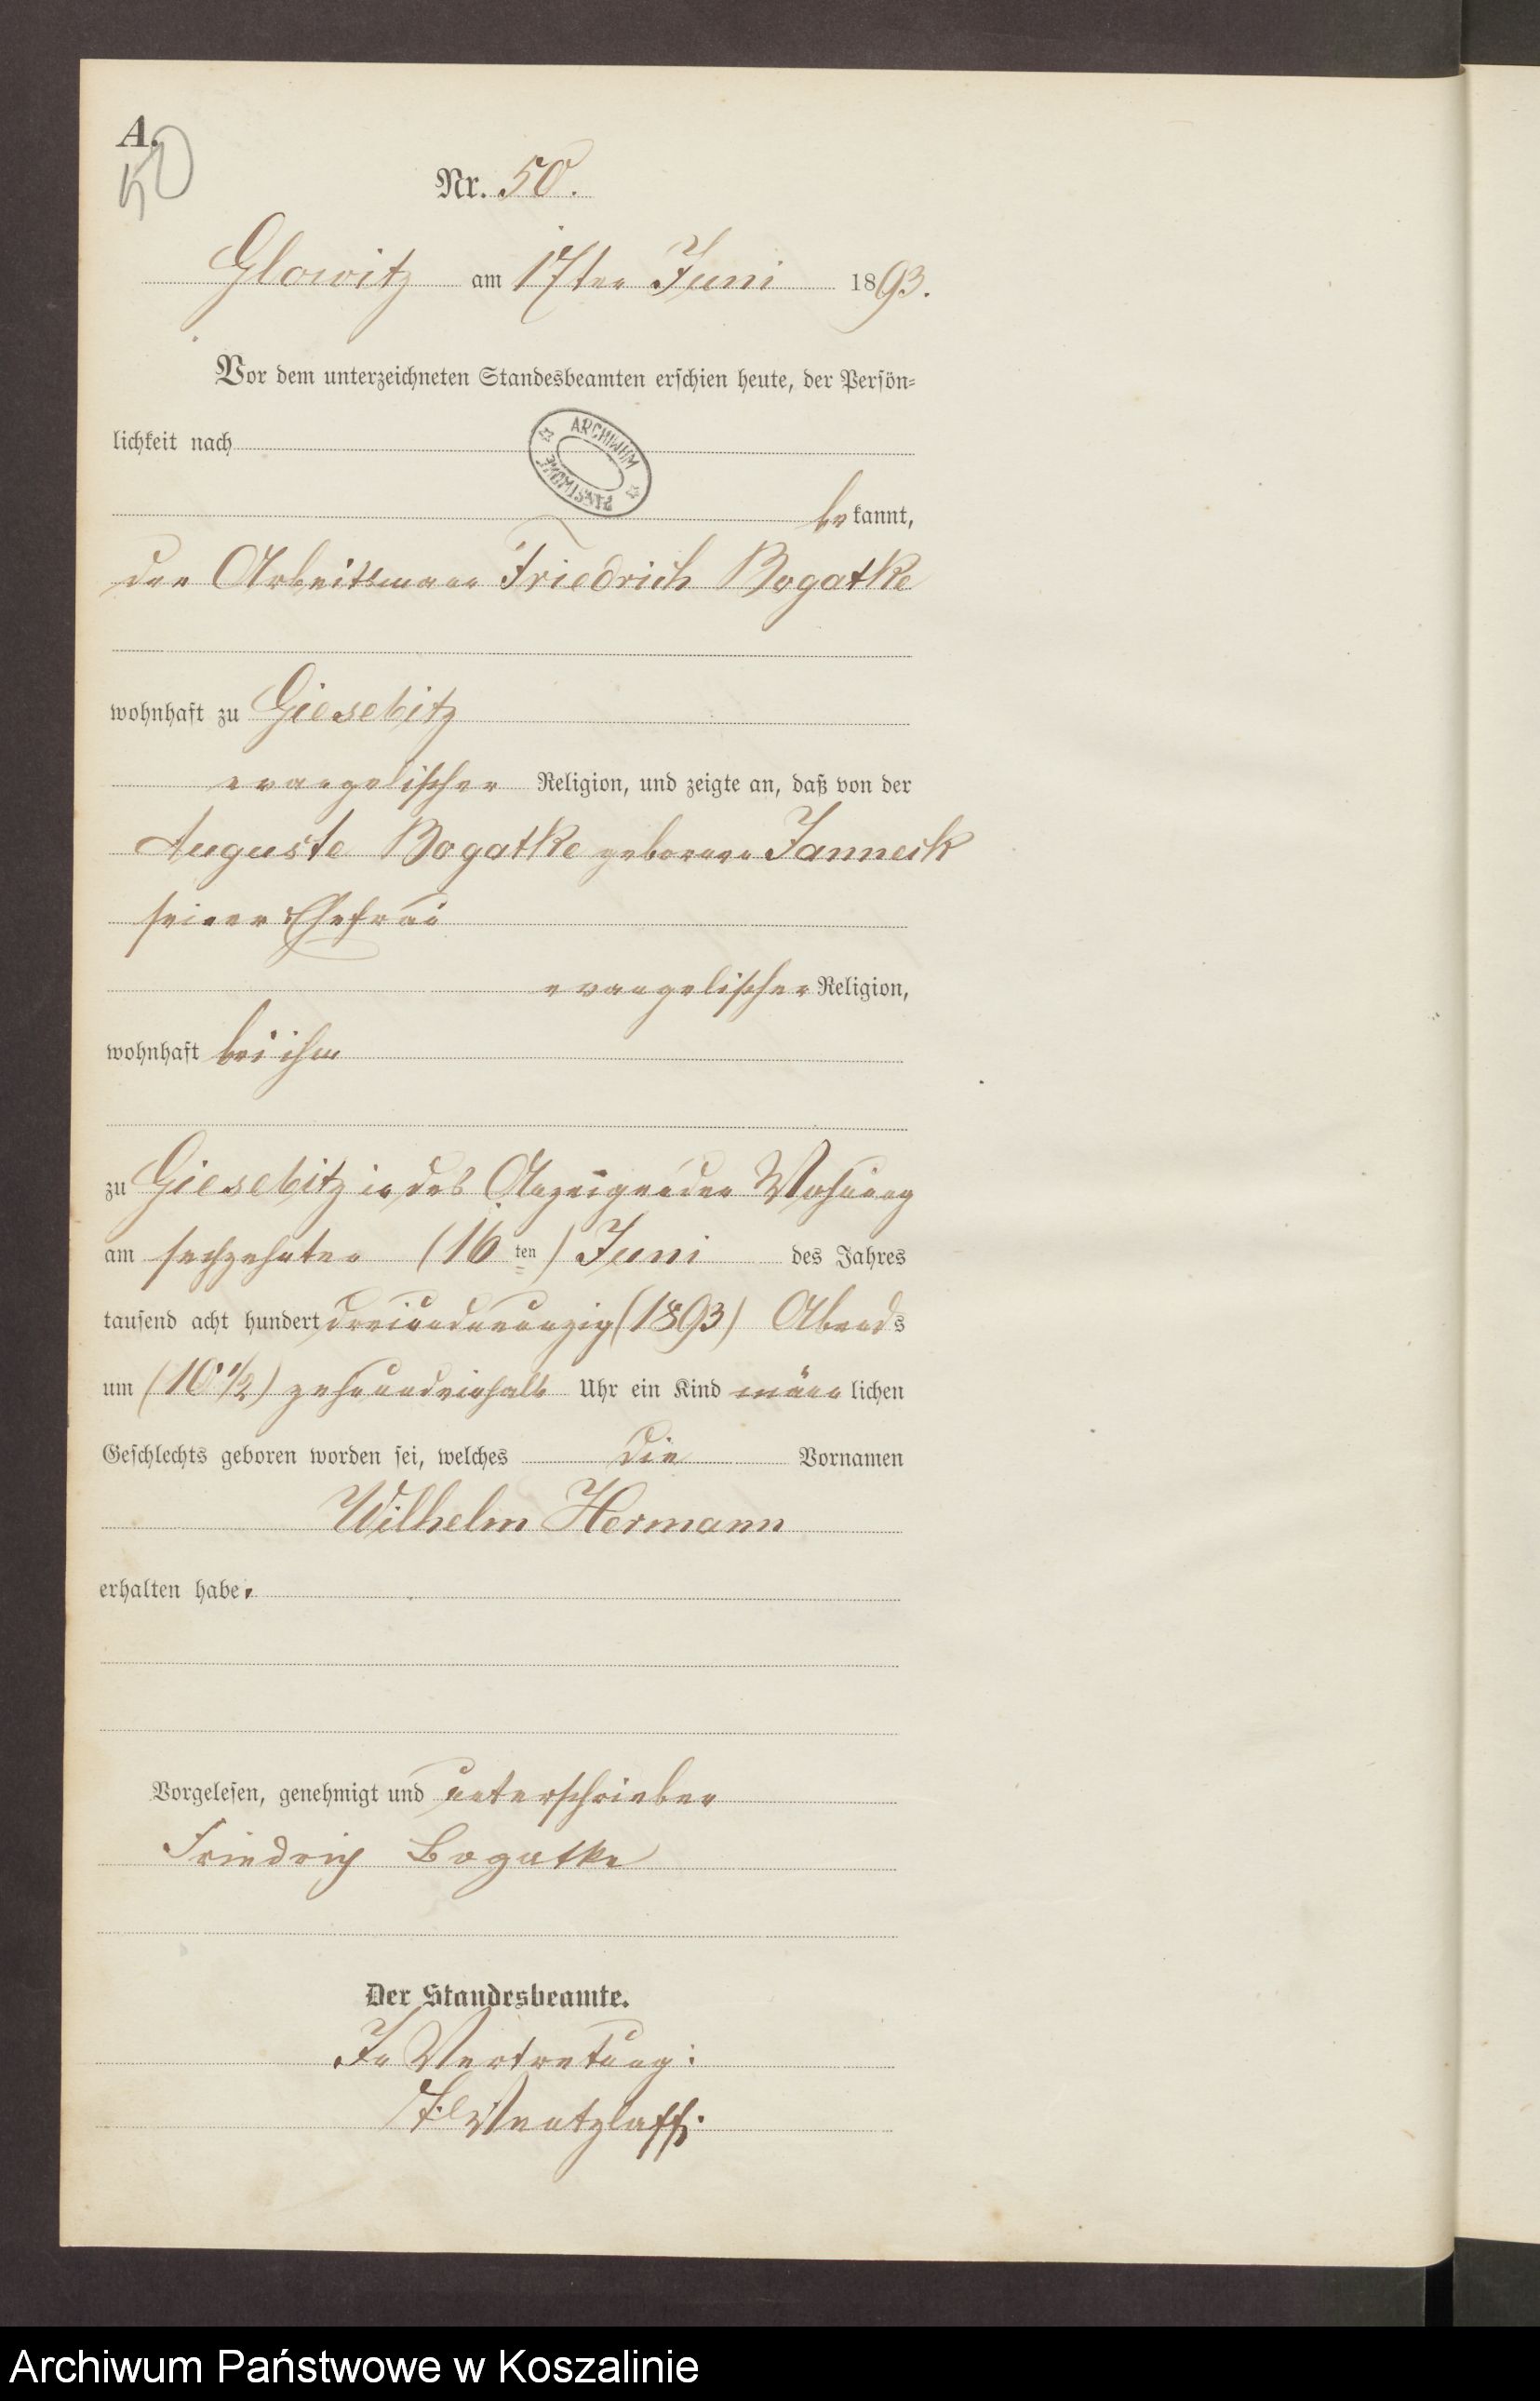 A.
50
Nr. 50.
Glowitz am 17ten Juni 1893.
Vor dem unterzeichneten Standesbeamten erschien heute, der Persön-
lichkeit nach
ARCHIWUM PAŃSTWOWE
bekannt,
der Arbeitsmann Friedrich Bogatke
wohnhaft zu Giesebitz
evangelischer Religion, und zeigte an, daß von der
Auguste Bogatke geborenen Janneck
seiner Ehefrau
evangelischer Religion,
wohnhaft bei ihm
zu Giesebitz in des Anzeigenden Wohnung
am sechzehnten (16ten) Juni des Jahres
tausend acht hundert dreiundneunzig (1893) Abends
um (10 1/2) zehnundeinhalb Uhr ein Kind männlichen
Geschlechts geboren worden sei, welches die Vornamen
Wilhelm Hermann
erhalten habe.
Vorgelesen, genehmigt und unterschrieben
Friedrich Bogatke
Der Standesbeamte.
In Vertretung:
Wentzlaff.
Archiwum Państwowe w Koszalinie